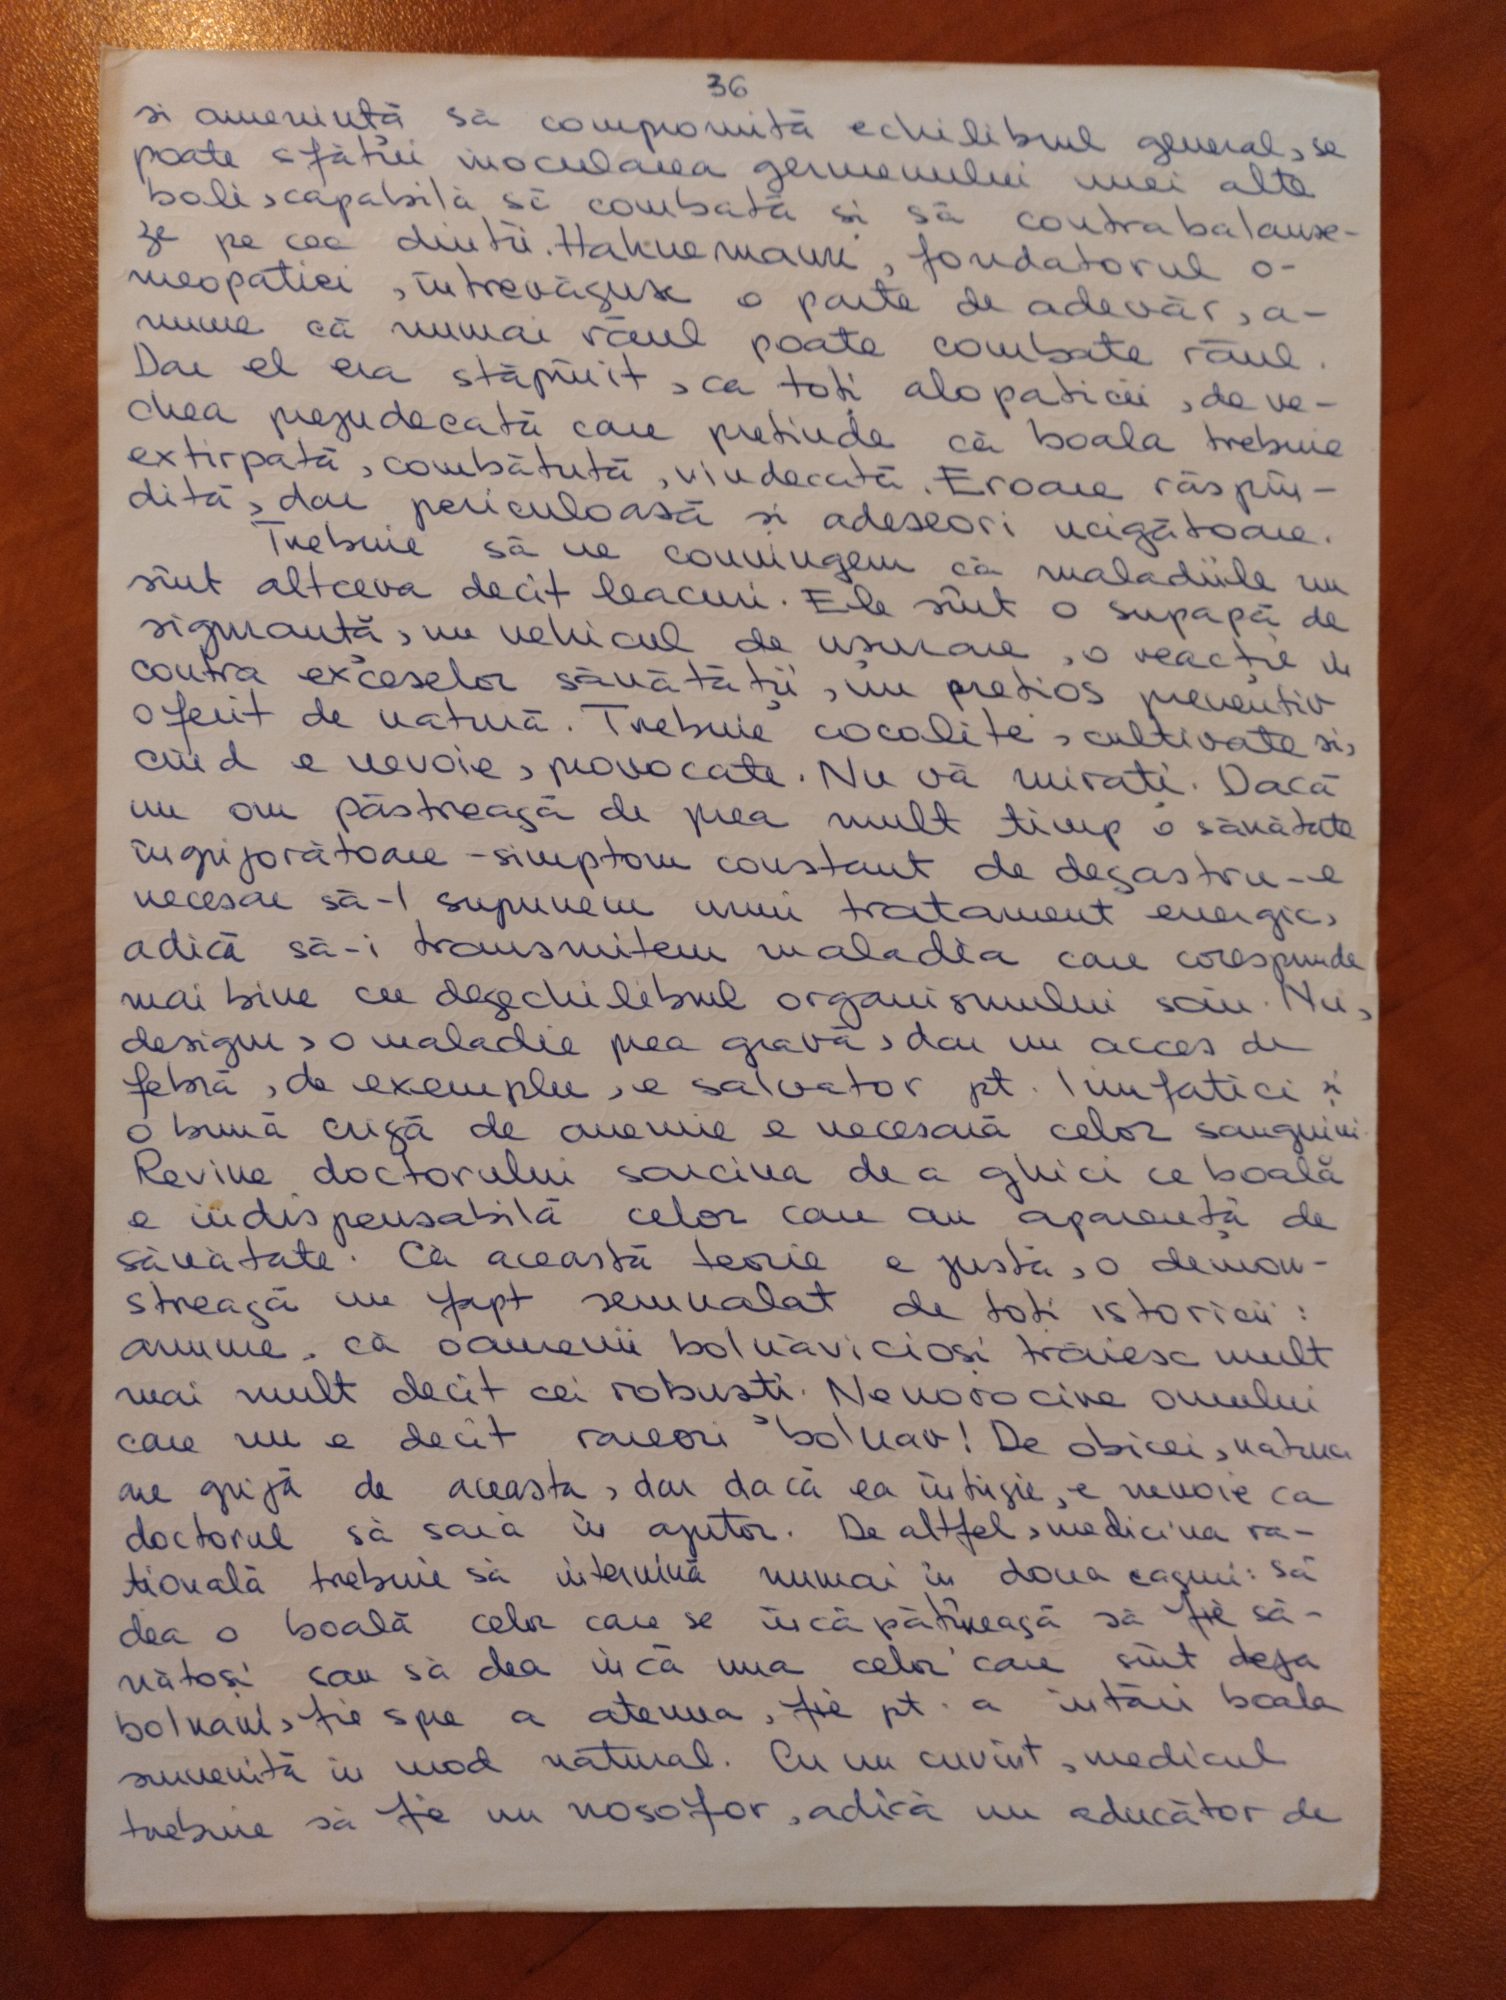 36
și amenință să compromită echilibrul general, se
poate sfătui inocularea germenului unei alte
boli, capabilă să combată și să contrabalanse-
ze pe cea dintîi. Hahnemann, fondatorul o-
meopatiei, întrevăzuse o parte de adevăr, a-
nume că numai răul poate combate răul.
Dar el era stăpînit, ca toți alopaticii, de ve-
chea prejudecată care pretinde că boala trebuie
extirpată, combătută, vindecată. Eroare răspîn-
dită, dar periculoasă și adeseori ucigătoare.
Trebuie să ne convingem că maladiile nu
sînt altceva decît leacuri. Ele sînt o supapă de
siguranță, un vehicul de ușurare, o reacție în
contra exceselor sănătății, un prețios preventiv
oferit de natură. Trebuie cocolite, cultivate și,
cînd e nevoie, provocate. Nu vă mirați. Dacă
un om păstrează de prea mult timp o sănătate
îngrijorătoare - simptom constant de dezastru - e
necesar să-l supunem unui tratament energic,
adică să-i transmitem maladia care corespunde
mai bine cu dezechilibrul organismului său. Nu,
desigur, o maladie prea gravă, dar un acces de
febră, de exemplu, e salvator pt. limfatici și
o bună criză de anemie e necesară celor sanguini.
Revine doctorului sarcina de a ghici ce boală
e indispensabilă celor care au aparență de
sănătate. Că această teorie e justă, o demon-
strează un fapt semnalat de toți istoricii:
anume, că oamenii bolnăvicioși trăiesc mult
mai mult decît cei robusti. Nenorocire omului
care nu e decît rareori bolnav! De obicei, natura
are grijă de aceasta, dar dacă ea întîrzie, e nevoie ca
doctorul să sară în ajutor. De altfel, medicina ra-
țională trebuie să intervină numai în doua cazuri: să
dea o boală celor care se încăpățînează să fie să-
nătoși sau să dea încă una celor care sînt deja
bolnavi, fie spre a atenua, fie pt. a întări boala
survenită în mod natural. Cu un cuvînt, medicul
trebuie să fie un nosofor, adică un aducător de